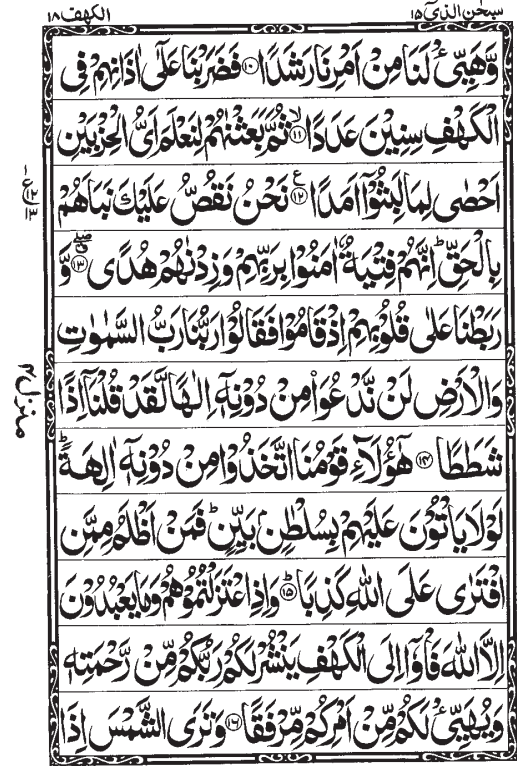 سبحٰن الذیٓ ۱۵
الکهف ۱۸
وَّهَيِّئْ لَنَا مِنْ اَمْرِنَا رَشَدًا ﴿۱۰﴾ فَضَرَبْنَا عَلٰۤى اٰذَانِهِمْ فِى
الْكَهْفِ سِنِيْنَ عَدَدًا ﴿۱۱﴾ۙ ثُمَّ بَعَثْنٰهُمْ لِنَعْلَمَ اَىُّ الْحِزْبَيْنِ
اَحْصٰى لِمَا لَبِثُوْۤا اَمَدًا ﴿۱۲﴾ۧ نَحْنُ نَقُصُّ عَلَيْكَ نَبَاَهُمْ
بِالْحَقِّ ؕ اِنَّهُمْ فِتْيَةٌ اٰمَنُوْا بِرَبِّهِمْ وَزِدْنٰهُمْ هُدًى ﴿۱۳﴾ۖ وَّ
رَبَطْنَا عَلٰى قُلُوْبِهِمْ اِذْ قَامُوْا فَقَالُوْا رَبُّنَا رَبُّ السَّمٰوٰتِ
وَالْاَرْضِ لَنْ نَّدْعُوَا۟ مِنْ دُوْنِهٖۤ اِلٰهًا لَّقَدْ قُلْنَاۤ اِذًا
شَطَطًا ﴿۱۴﴾ هٰۤؤُلَآءِ قَوْمُنَا اتَّخَذُوْا مِنْ دُوْنِهٖۤ اٰلِهَةً ؕ
لَوْلَا يَاْتُوْنَ عَلَيْهِمْ بِسُلْطٰنٍۭ بَيِّنٍ ؕ فَمَنْ اَظْلَمُ مِمَّنِ
افْتَرٰى عَلَى اللّٰهِ كَذِبًا ﴿۱۵﴾ؕ وَاِذِ اعْتَزَلْتُمُوْهُمْ وَمَا يَعْبُدُوْنَ
اِلَّا اللّٰهَ فَاْوٗۤا اِلَى الْكَهْفِ يَنْشُرْ لَكُمْ رَبُّكُمْ مِّنْ رَّحْمَتِهٖ
وَيُهَيِّئْ لَكُمْ مِّنْ اَمْرِكُمْ مِّرْفَقًا ﴿۱۶﴾ وَتَرَى الشَّمْسَ اِذَا
منزل ۴